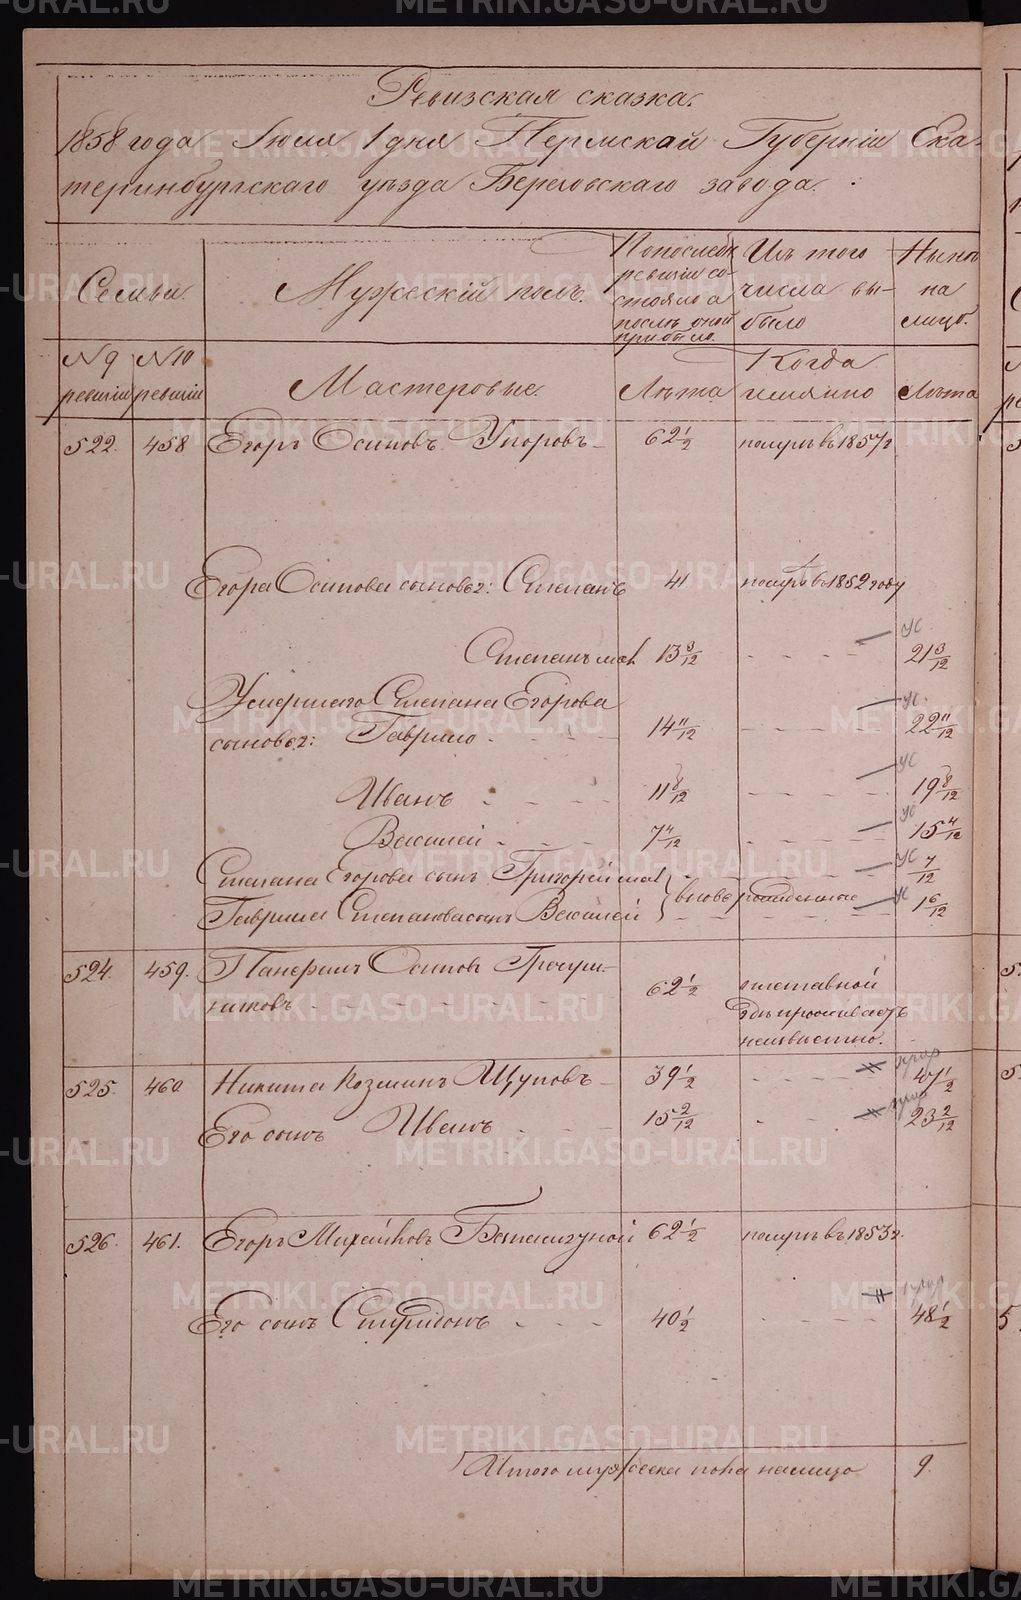 Ревизская сказка.
1858 года Июля 1 дня Пермской Губернiи Ека-
теринбургскаго уѣзда Березовскаго завода.
Семьи.
Мужескiй полъ.
По последн.
ревизiи со-
стояло а
послѣ оной
прибыло.
Изъ того
числа вы-
было
Нынѣ
на
лицо.
№ 9
ревизiи
№ 10
ревизiи
Мастеровые.
Лѣта
Когда
имянно
Лѣта
522. 458 Егоръ Осиповъ Упоровъ 62 1/2 померъ в 1857 г.
Егора Осипова сыновья: Степанъ 41 померъ в 1852 году
Степанъ мал 13 3/12 21 3/12
Умершаго Степана Егорова
сыновья: Гаврило 14 11/12 22 11/12
Иванъ 11 8/12 19 8/12
Василей 7 4/12 15 4/12
Степана Егорова сынъ Григорей мал 7/12
Гаврила Степанова сынъ Василей вновь рожденные 1 6/12
524. 459. Панфилъ Осиповъ
62 1/2
проживаетъ
неизвестно.
525. 460 Никита Козминъ Щуповъ 39 1/2 47 1/2
Его сынъ Иванъ 15 2/12 23 2/12
526. 461. Егоръ Михайловъ 62 1/2 померъ въ 1853 г.
Его сынъ Спиридонъ 40 1/2 48 1/2
Итого мужеска пола налицо 9.
METRIKI.GASO-URAL.RU